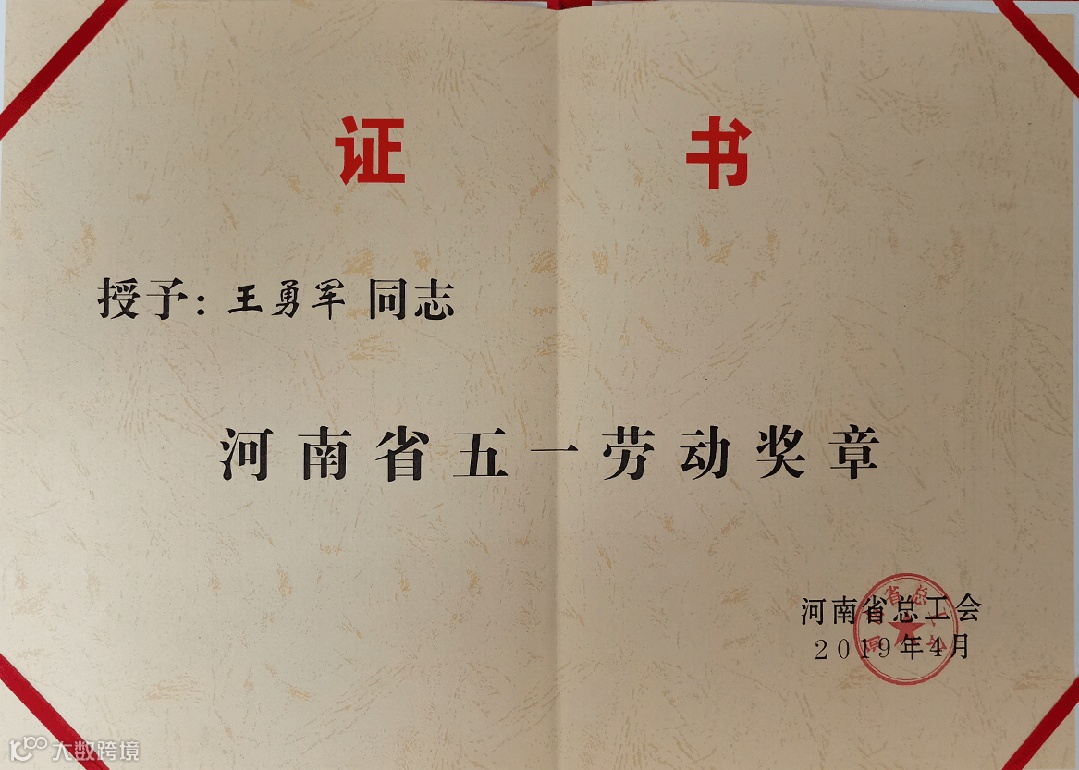 证书
授予：王勇军同志
河南省五一劳动奖章
河南省总工会
2019年4月
大数跨境